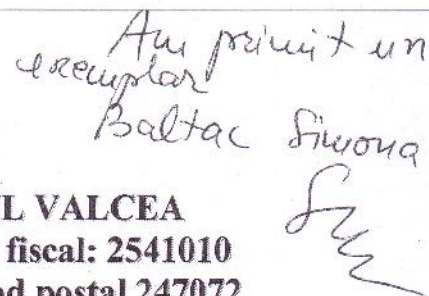 Am primit un
exemplar
Baltac Simona
L VALCEA
fiscal: 2541010
od postal 247072